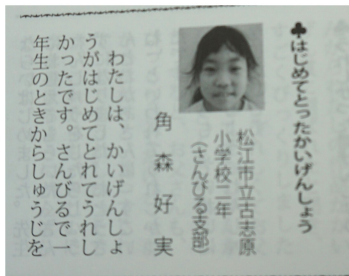 ♣はじめてとったかいげんしょう
松江市立古志原
小学校二年
(さんびる支部)
角森好実
わたしは、かいげんしょ
うがはじめてとれてうれし
かったです。さんびるで一
年生のときからしゅうじを